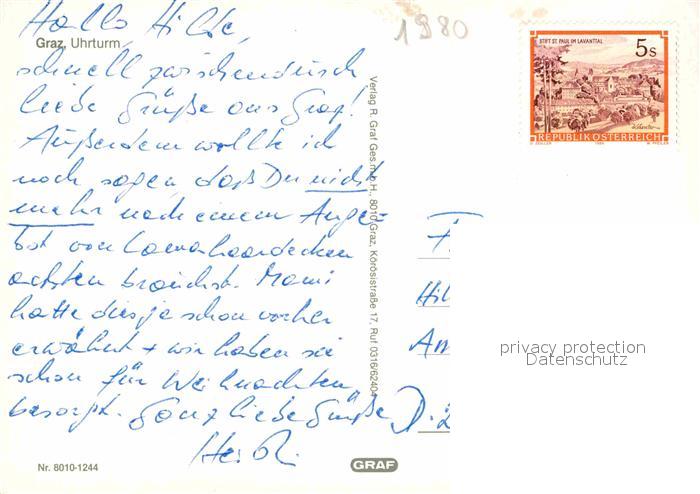 Hallo Hilde,
Graz, Uhrturm
schnell zwischendurch
liebe Grüße aus Graz!
Außerdem wollte ich
noch sagen, daß Du nicht
mehr nach einem Ange-
bot von Lamahaardecken
achten brauchst. Mami
hatte dies ja schon vorher
erwähnt + wir haben sie
schon für Weihnachten
besorgt. Ganz liebe Grüße
Heidi
Nr. 8010-1244
GRAF
Verlag R. Graf Ges.m.b.H., 8010 Graz, Körösistraße 17, Ruf 0316/62404
1980
STIFT ST. PAUL IM LAVANTTAL
5s
REPUBLIK ÖSTERREICH
F.
Hil
Am
D-2
privacy protection
Datenschutz